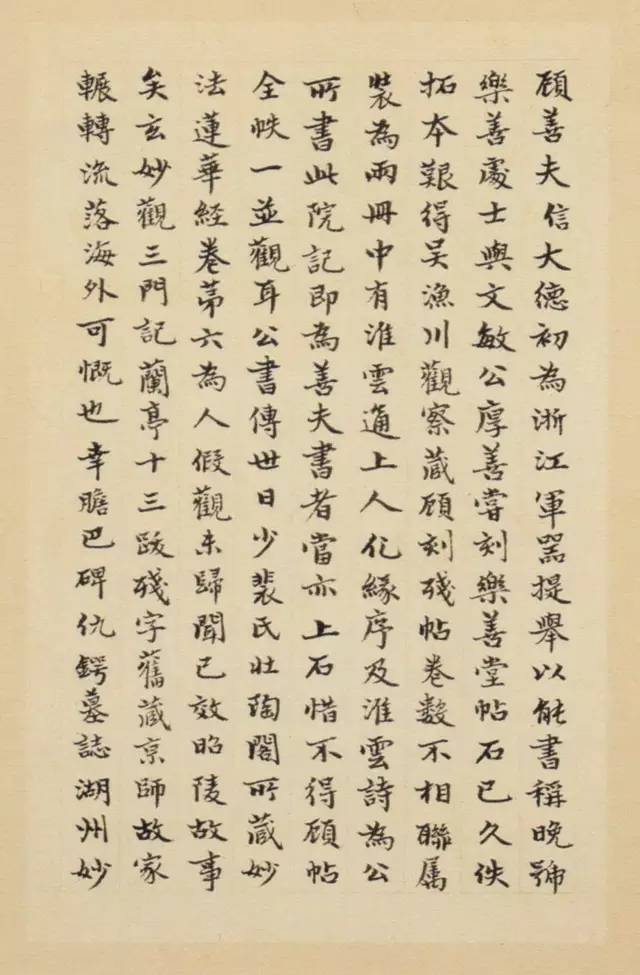 顧善夫信大德初為浙江軍器提舉以能書稱晚號
樂善處士與文敏公厚善嘗刻樂善堂帖石已久佚
拓本艱得吳漁川觀察藏顧刻殘帖卷數不相聯属
裝為兩冊中有淮雲通上人化緣序及淮雲詩為公
所書此院記即為善夫書者當亦上石惜不得顧帖
全帙一並觀耳公書傳世日少裴氏壯陶閣所藏妙
法蓮華經卷苐六為人假觀未歸聞已效昭陵故事
矣玄妙觀三門記蘭亭十三跋殘字舊藏京師故家
輾轉流落海外可慨也幸膽巴碑仇鍔墓誌湖州妙